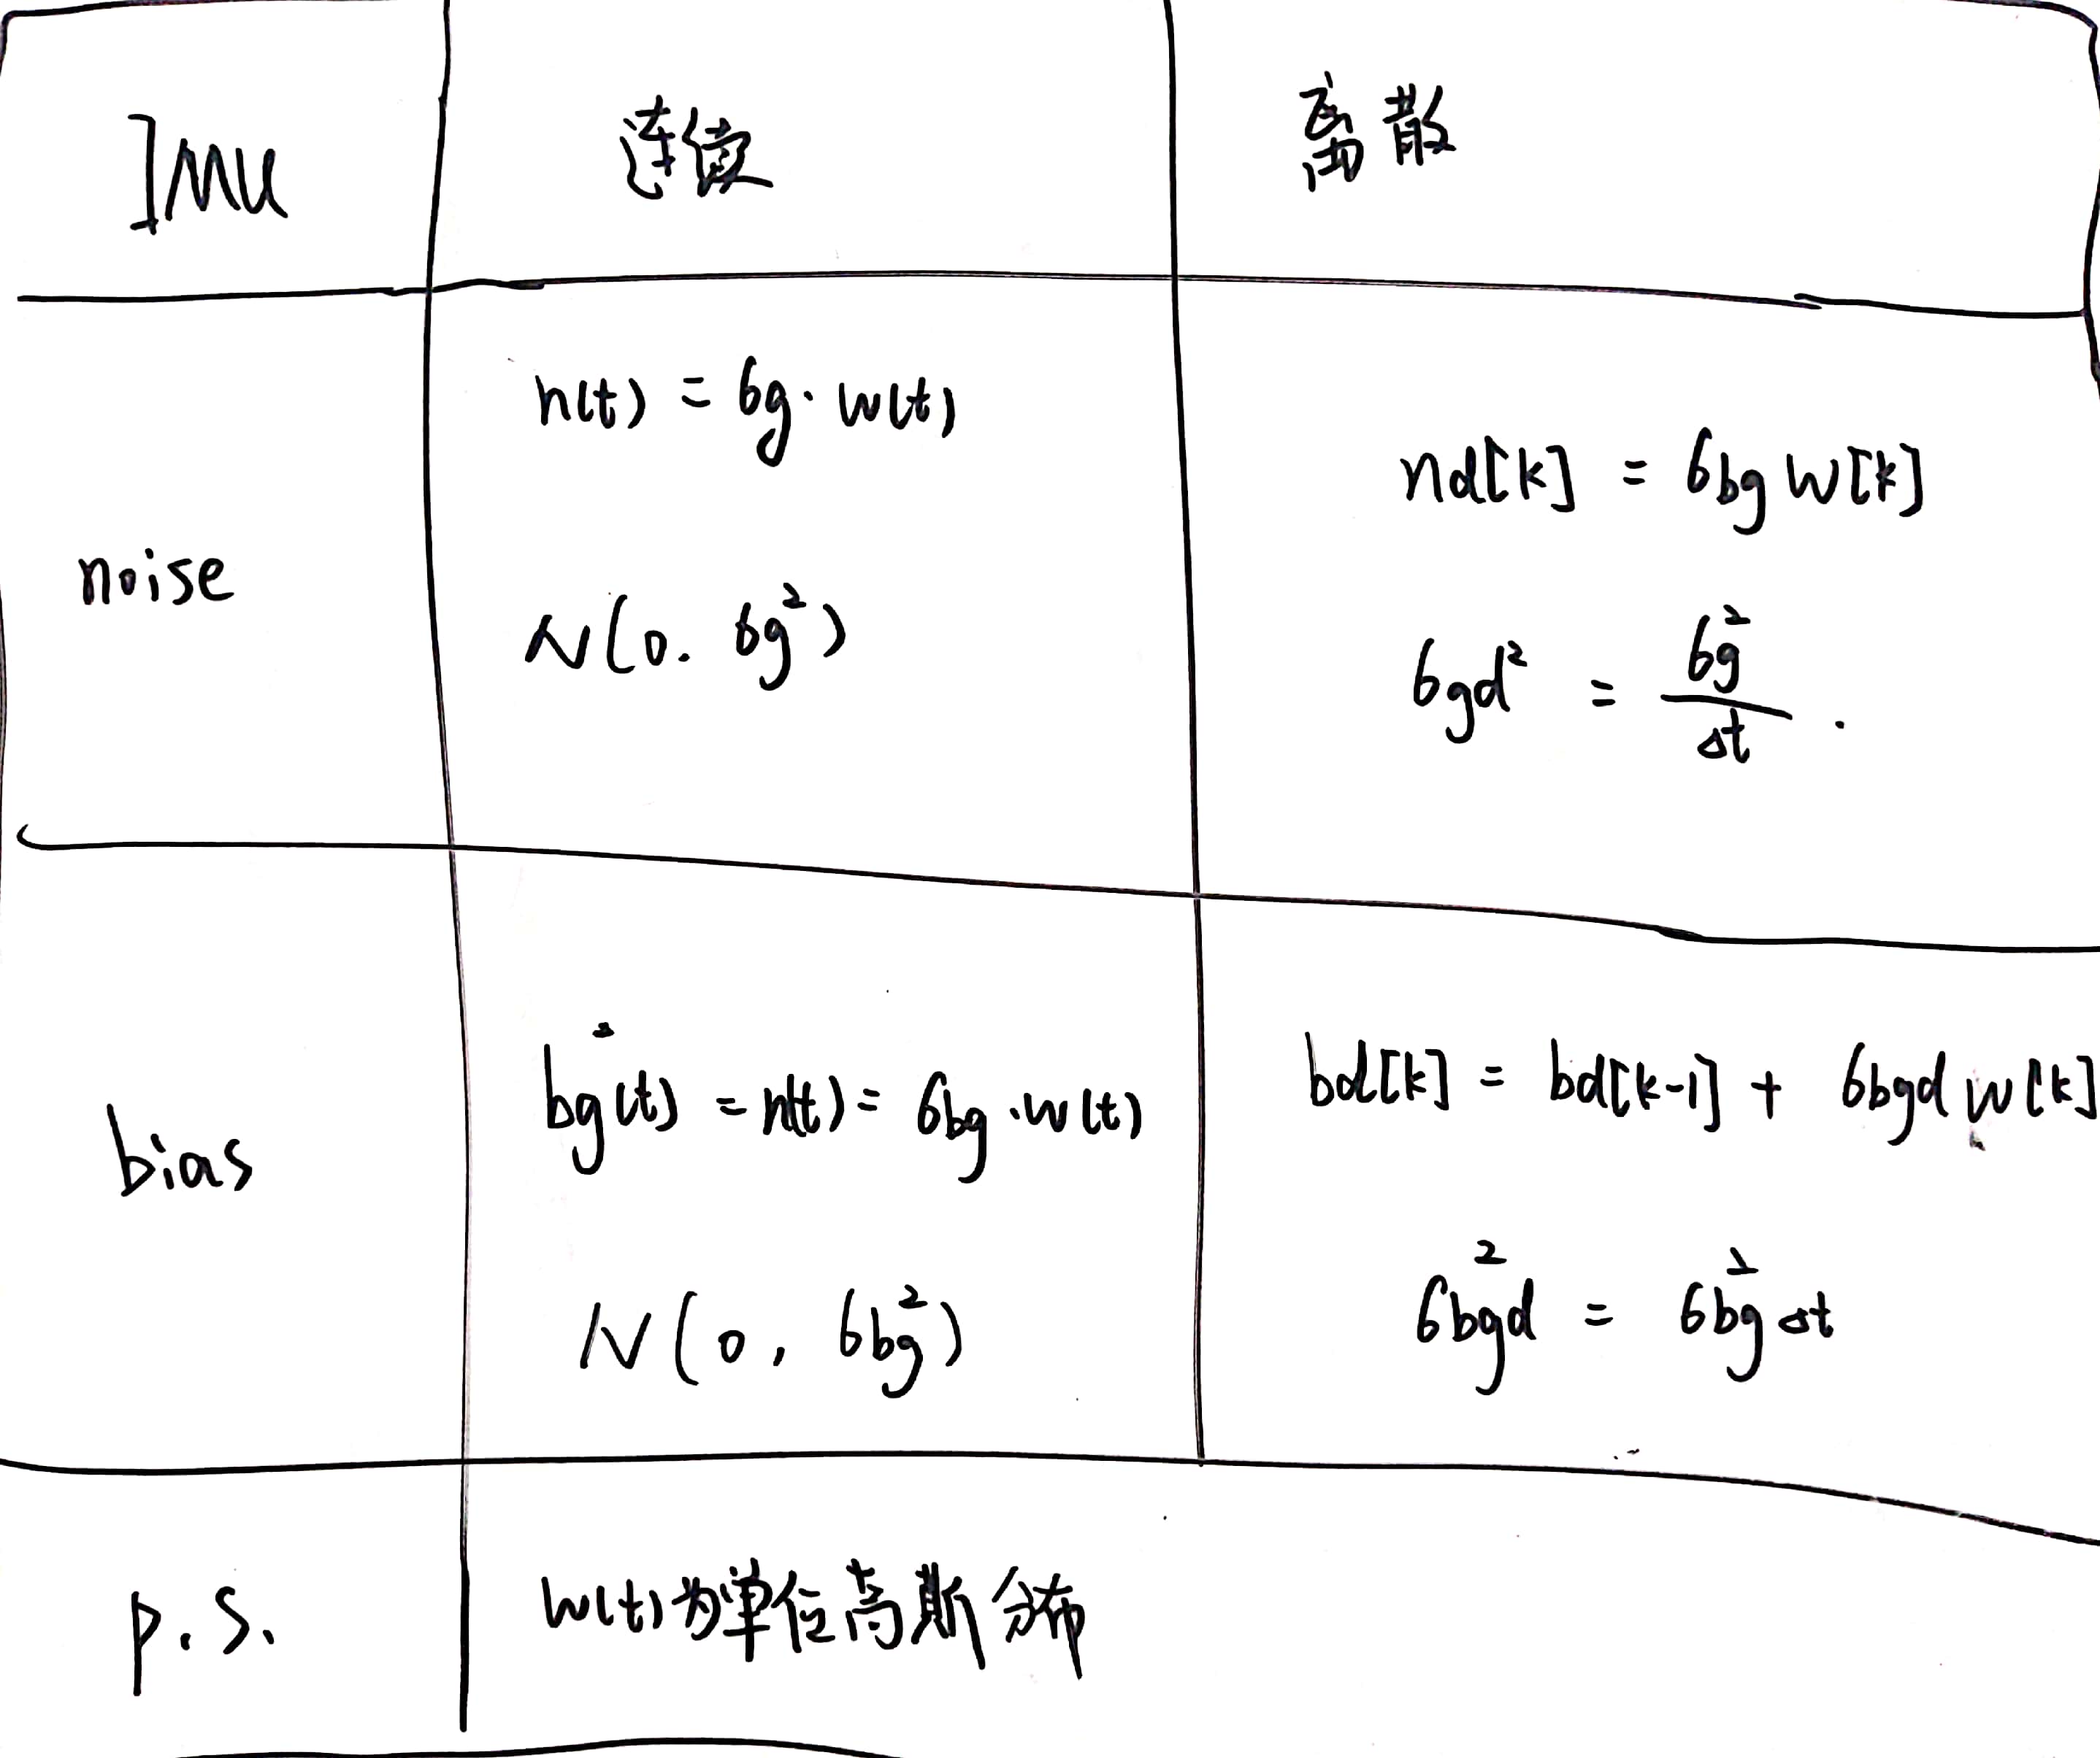 IMU 连续 离散
noise
n(t) = σg · w(t)
N(0. σg²)
nd[k] = σbg w[k]
σgd² = σg²/Δt .
bias
ḃg(t) = n(t) = σbg · w(t)
N(0, σbg²)
bd[k] = bd[k-1] + σbgd w[k]
σ²bgd = σbg² Δt
p.s. w(t)为单位高斯分布